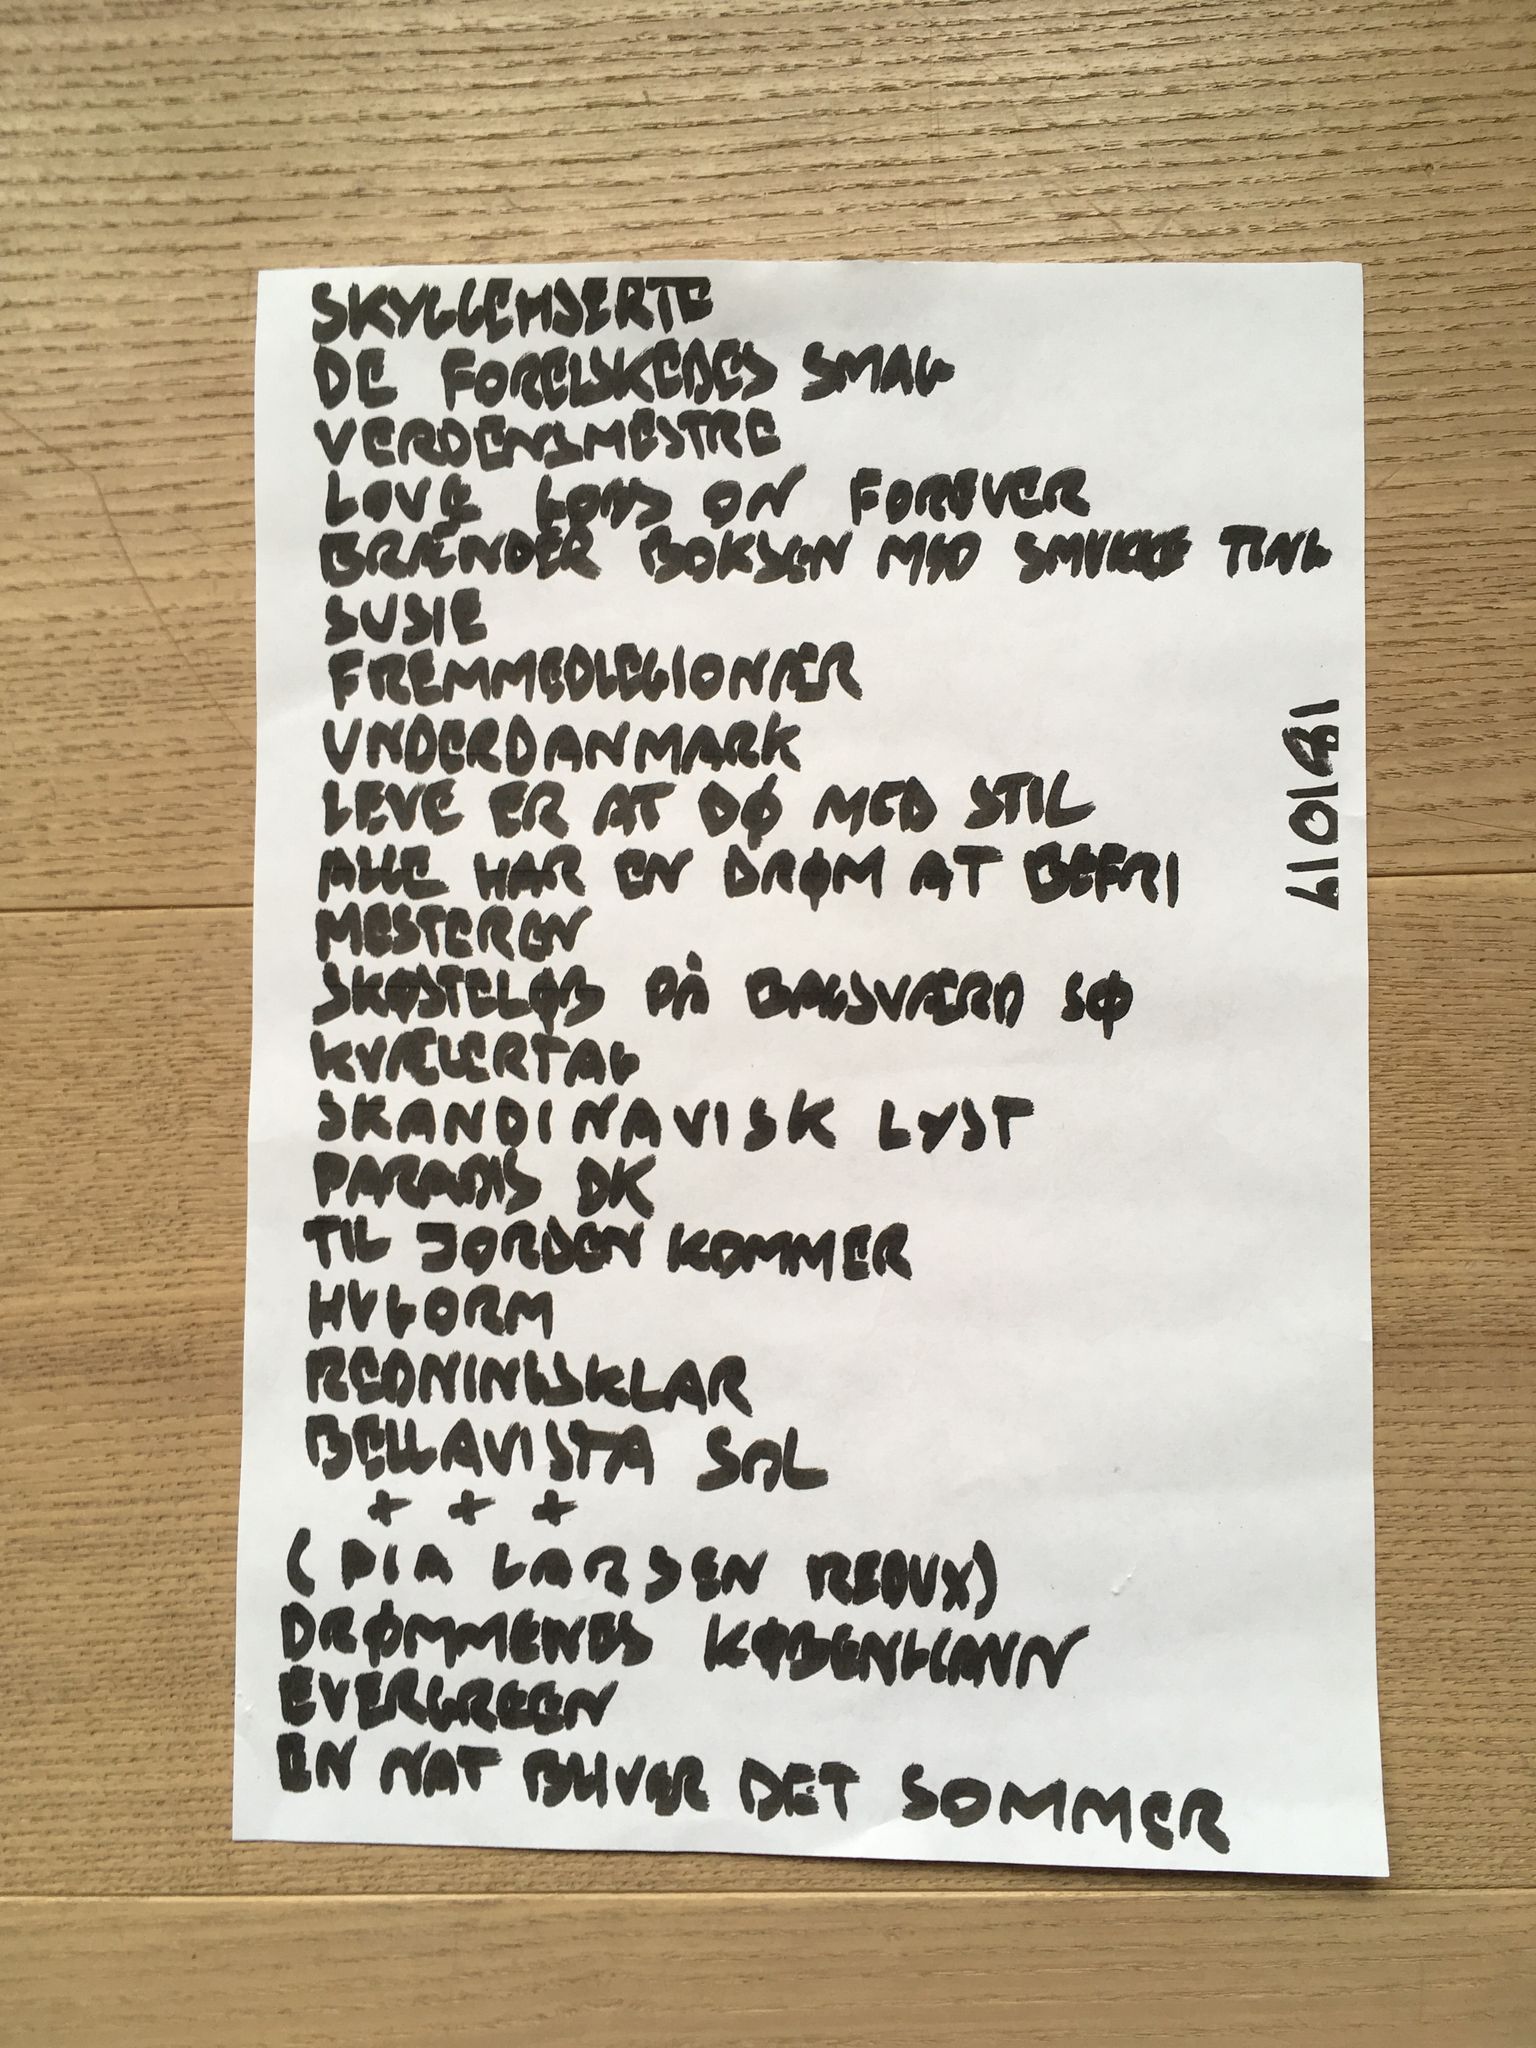 SKYGGEHJERTE
DE FORELSKEDES SMAG
VERDENSMESTRE
LOVE GOES ON FOREVER
BRÆNDER BOKSEN MED SMUKKE TING
SUSIE
FREMMEDLEGIONÆR
UNDERDANMARK
LEVE ER AT DØ MED STIL
ALLE HAR EN DRØM AT BEFRI
MESTEREN
SKØJTELØB PÅ BAGSVÆRD SØ
KVÆLERTAG
SKANDINAVISK LYST
PARADIS DK
TIL JORDEN KOMMER
HUGORM
REDNINGSKLAR
BELLAVISTA SOL
+ + +
(PIA LARSEN REDUX)
DRØMMENES KØBENHAVN
EVERGREEN
EN NAT BLIVER DET SOMMER